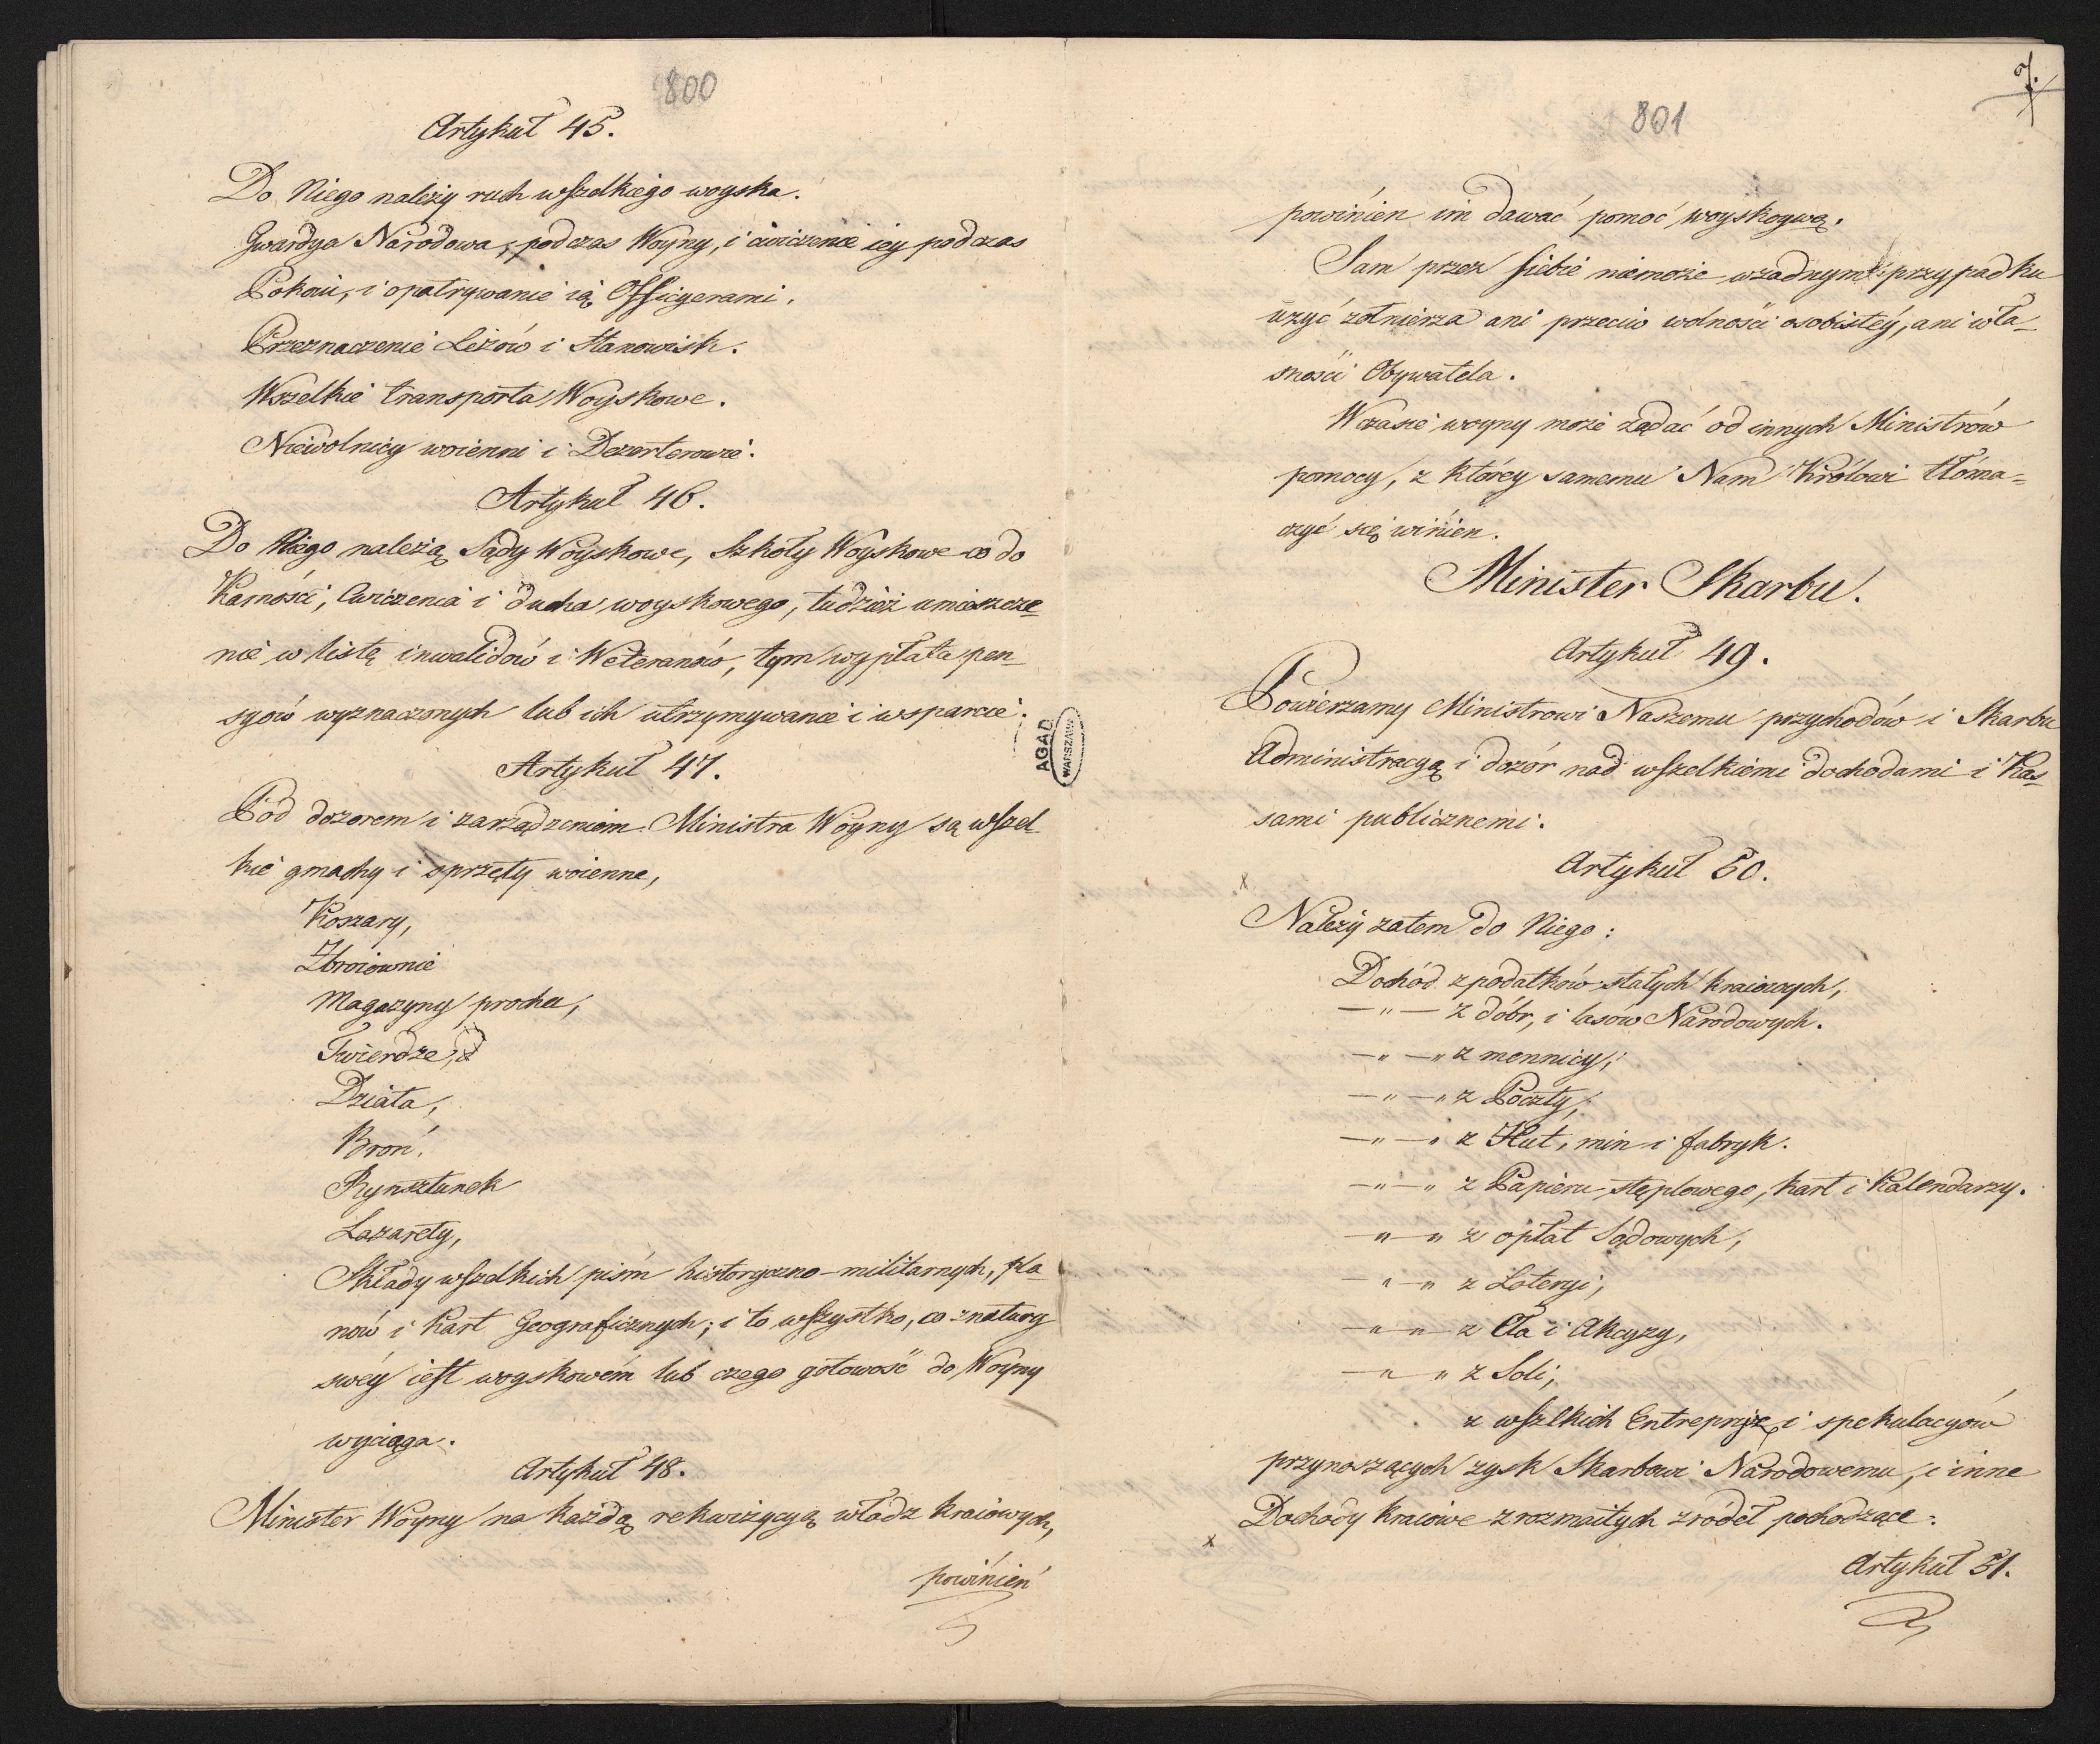 800
Artykuł 45.
Do Niego należy ruch wszelkiego woyska.
Gwardya Narodowa, podczas Woyny, i ćwiczenie iey podczas
Pokoiu, i opatrywanie ią Officyerami.
Przeznaczenie Leżów i Stanowisk.
Wszelkie transporta Woyskowe.
Niewolnicy woienni i Dezerterowie.
Artykuł 46.
Do Niego należą Sądy Woyskowe, Szkoły Woyskowe co do
Karności, Cwiczenia i ducha woyskowego, tudzież umieszcze=
nie w listę inwalidów i Weteranów, tym wypłata pen=
syów wyznaczonych lub ich utrzymywanie i wsparcie.
Artykuł 47.
Pod dozorem i zarządzeniem Ministra Woyny są wszel=
kie gmachy i sprzęty woienne,
Koszary,
Zbroiownie
Magazyny prochu,
Twierdze,
Działa,
Broń,
Rynsztunek
Lazarety,
Składy wszelkich pism historyczno-militarnych, pla=
nów i Kart Geograficznych; i to wszystko, co z natury
swéy iest woyskowém lub czego gotowość do Woyny
wyciąga.
Artykuł 48.
Minister Woyny na każdą rekwizycyą władz kraiowych,
powinien
AGAD
WARSZAWA
7.
801
powinien im dawać pomoc woyskową.
Sam przez siebie niemoże wżadnym przypadku
użyć żołnierza ani przeciw wolności osobistéy, ani wła=
sności Obywatela.
Wczasie woyny może żądać od innych Ministrów
pomocy, z którey samemu Nam Królowi tłóma=
czyć się winien.
Minister Skarbu.
Artykuł 49.
Powierzamy Ministrowi Naszemu przychodów i Skarbu
Administracyą i dozór nad wszelkiemi dochodami i Kas=
sami publicznemi.
Artykuł 50.
Należy zatem do Niego:
Dochód z podatków stałych kraiowych,
—"— z dóbr, i lasów Narodowych.
—"—" z mennicy,
—"—" z Poczty,
—"—" z Hut, min i fabryk.
—"—" z Papieru stęplowego, kart i Kalendarzy.
—"—" z opłat Sądowych,
—"—" z Loteryi,
—"—"— z Cła i Akcyzy,
—"—" z Soli,
z wszlkich Entrepryz i spekulacyów
przynoszących zysk Skarbowi Narodowemu, i inne
Dochody kraiowe z rozmaitych źródeł pochodzące.
Artykuł 51.